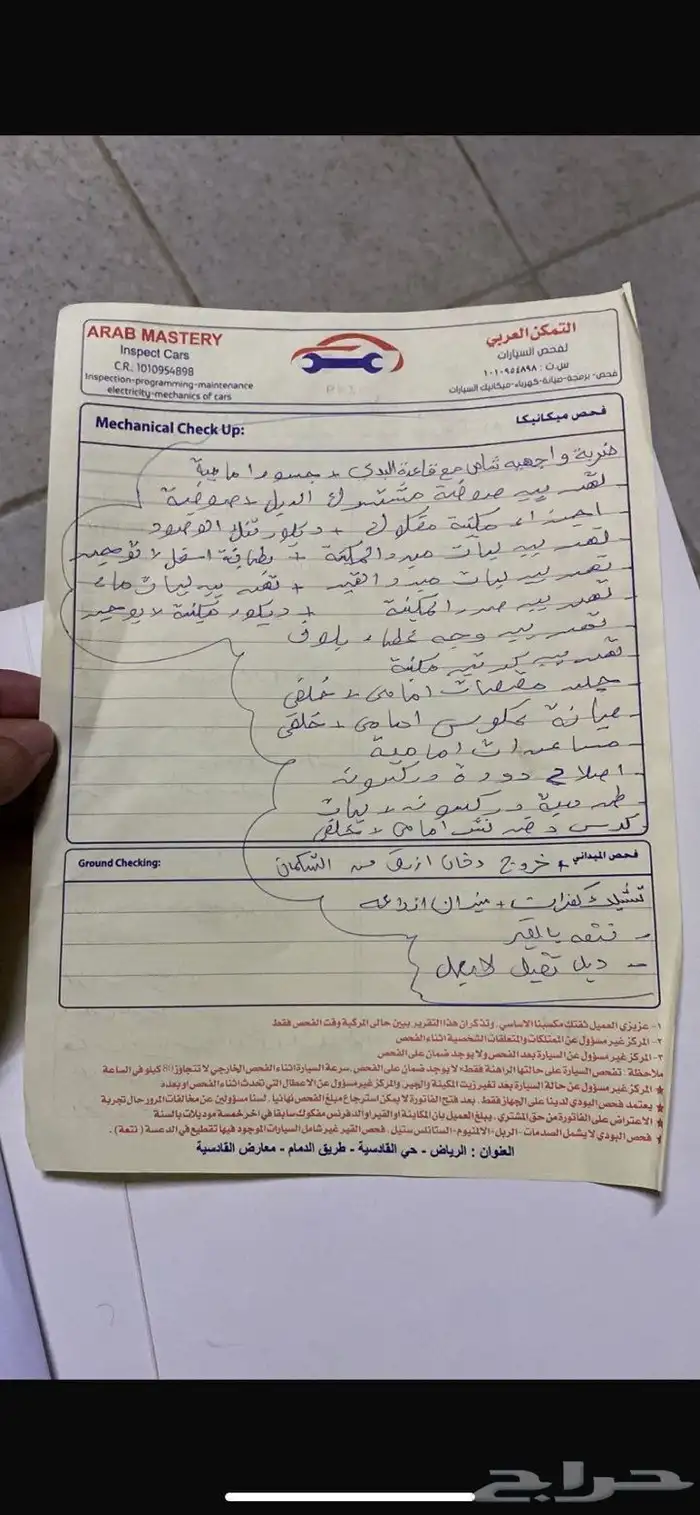 ARAB MASTERY
Inspect Cars
C.R. 1010954898
Inspection-programming-maintenance
electricity-mechanics of cars
التمكن العربي
لفحص السيارات
س.ت : ١٠١٠٩٥٤٨٩٨
فحص- برمجة-صيانة-كهرباء-ميكانيك السيارات
Mechanical Check Up:
فحص ميكانيكا
ضربة واجهيه شاص مع قاعدة البدي + جسور امامية
تهريب
اجزاء مكينة مفكوك + ديكور
تهريب لبات صدر المكينة + بطانة اسفل لا توجد
تهريب لبات صدر القير + تهريب لبات ماء
تهريب صدر المكينة + ديكور مكينة لا يوجد
تهريب وجه غطاء بلوف
تهريب كرتير مكينة
جلد مقصات امامي + خلفي
صيانة عكوس امامي + خلفي
مساعدات امامية
اصلاح دودة دركسونه
طرمبة دركسونه لبات
كرسي
Ground Checking:
فحص الميداني + خروج دخان ازرق من الشكمان
تشييك كفرات + ميزان اذرعه
- نتعه بالقير
- دبل ثقيل لا يعمل
١- عزيزي العميل ثقتك مكسبنا الاساسي. وتذكر ان هذا التقرير يبين حالى المركبة وقت الفحص فقط
٢- المركز غير مسؤول عن الممتلكات والمتعلقات الشخصية اثناء الفحص
٣- المركز غير مسؤول عن السيارة بعد الفحص ولا يوجد ضمان على الفحص
ملاحظة : تفحص السيارة على حالتها الراهنة فقط؛ لا يوجد ضمان على الفحص. سرعة السيارة اثناء الفحص الخارجي لا تتجاوز 80 كيلو في الساعة
★ المركز غير مسؤول عن حالة السيارة بعد تغير زيت المكينة والجير. والمركز غير مسؤول عن الاعطال التي تحدث اثناء الفحص او بعده
★ يعتمد فحص البودي لدينا على الجهاز فقط. بعد فتح الفاتورة لا يمكن استرجاع مبلغ الفحص نهائيا. لسنا مسؤولين عن مخالفات المرور حال تجربة
★ الاعتراض على الفاتورة من حق المشتري. يبلغ العميل بان المكاينة او القير او الدفرنس مفكوك سابقا في اخر خمسة موديلات بالسنة
★ فحص البودي لا يشمل الصدمات - الربل - الالمنيوم - الستانلس ستيل. فحص القير غير شامل السيارات الموجود فيها تقطيع في الدعسة ( نتعة ) .
العنوان : الرياض - حي القادسية - طريق الدمام - معارض القادسية
حراج